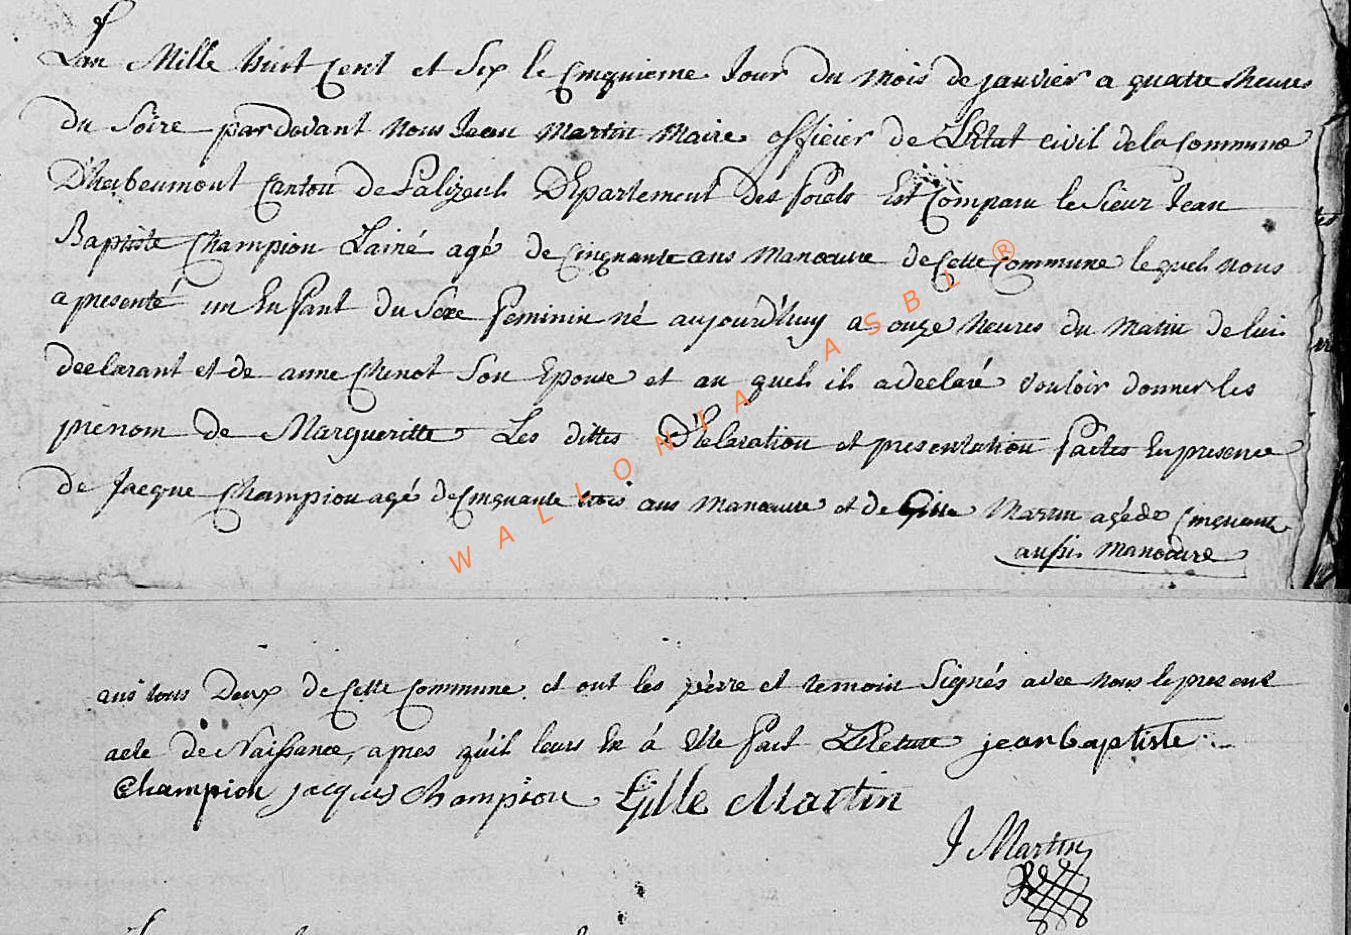 Lan Mille huit Cent et Six le Cinquieme Jour du mois de janvier a quatre heures
du Soire pardevant nous Jean Martin Maire officier de L'Etat civil de la Commune
D'herbeumont Canton de Palizeul Departement des forets Est Comparu le Sieur Jean
Baptiste Champion L'ainé agé de Cinquante ans Manoeuvre de Cette Commune le quel nous
a presenté un Enfant du Sexe feminin né aujourd'huy a onze heures du Matin de lui
declarant et de anne Chenot Son Epouse et au quel il a declaré vouloir donner les
prénom de Margueritte Les dittes Declaration et presentation faites En presence
de Jacque Champion agé de Cinquante trois ans Manoeuvre et de Gille Martin agé de Cinquante
aussi Manoeuvre
ans tous Deux de Cette Commune et ont les péere et temoin Signés avec nous le present
acte de Naissance, apres qu'il leurs En á Ette fait Lecture jean baptiste
Champion jacques champion Gille Martin
J Martin
WALLONIA ASBL ®